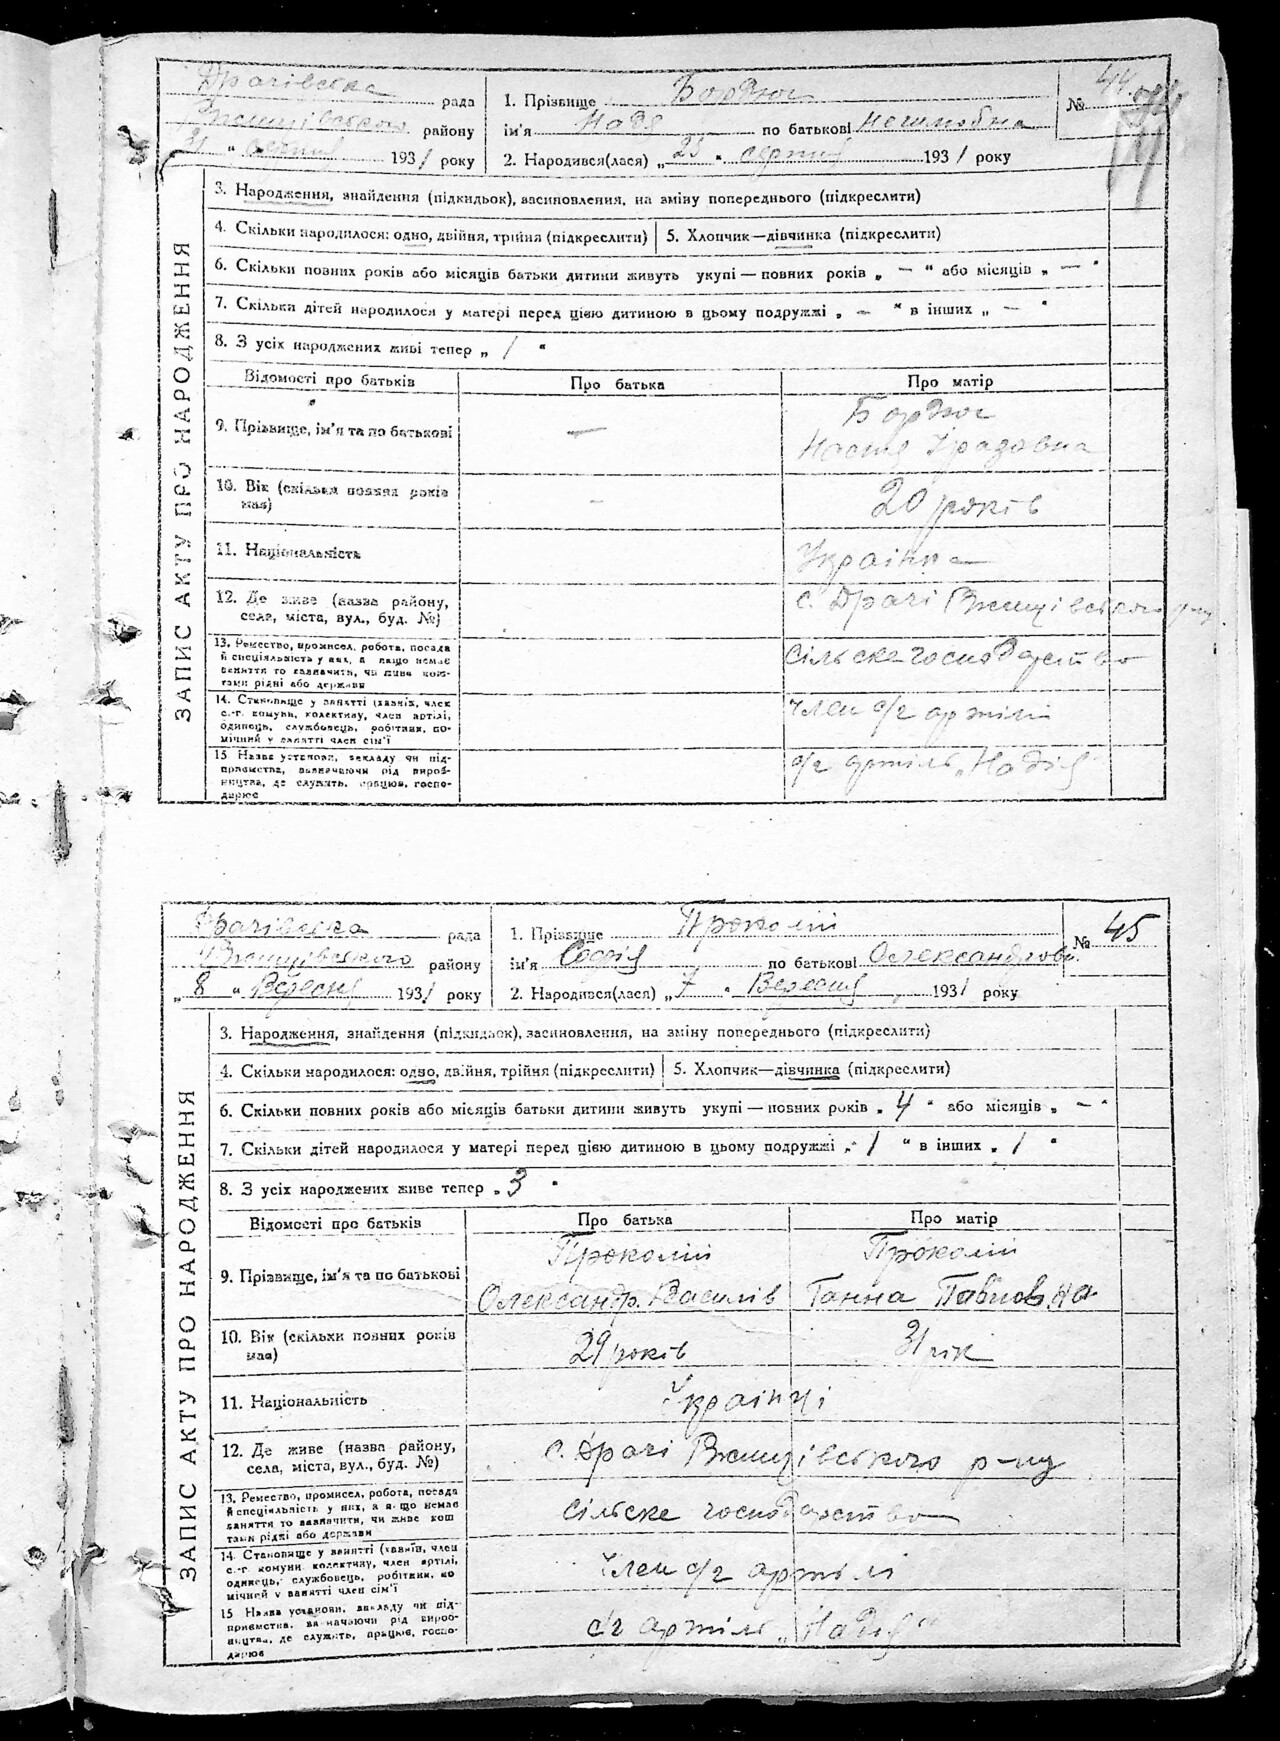 Драчівська рада
району
31 " серпня 1931 року
1. Прізвище Бордюг
ім'я Надя по батькові
2. Народився(лася) „ 25 " серпня 1931 року
№ 44
ЗАПИС АКТУ ПРО НАРОДЖЕННЯ
3. Народження, знайдення (підкидьок), засиновлення, на зміну попереднього (підкреслити)
4. Скільки народилося: одно, двійня, трійня (підкреслити) 5. Хлопчик—дівчинка (підкреслити)
6. Скільки повних років або місяців батьки дитини живуть укупі — повних років „ — " або місяців „ — "
7. Скільки дітей народилося у матері перед цією дитиною в цьому подружжі „ — " в інших „ — "
8. З усіх народжених живі тепер „ 1 "
Відомості про батьків Про батька Про матір
9. Прізвище, ім'я та по батькові — Бордюг
Настя
10. Вік (скільки повних років має) – 20 років
11. Національність Українка
12. Де живе (назва району, села, міста, вул., буд. №) с. Драчі
13. Ремество, промисел, робота, посада й спеціяльність у них, а якщо немає заняття то зазначити, чи живе коштами рідні або держави Сільське господарство
14. Становище у занятті (хазяїн, член с.-г. комуни, колективу, член артілі, одинець, службовець, робітник, помічний у занятті член сім'ї член с/г артілі
15 Назва установи, закладу чи підприємства, зазначаючи рід виробництва, де служить, працює, господарює с/г артіль „Надія"
Драчівська рада
району
„ 8 " Вересня 1931 року
1. Прізвище Проколій
ім'я Софія по батькові Олександровн.
2. Народився(лася) „ 7 " Вересня 1931 року
№ 45
ЗАПИС АКТУ ПРО НАРОДЖЕННЯ
3. Народження, знайдення (підкидьок), засиновлення, на зміну попереднього (підкреслити)
4. Скільки народилося: одно, двійня, трійня (підкреслити) 5. Хлопчик—дівчинка (підкреслити)
6. Скільки повних років або місяців батьки дитини живуть укупі — повних років „ 4 " або місяців „ — "
7. Скільки дітей народилося у матері перед цією дитиною в цьому подружжі „ 1 " в інших „ 1 "
8. З усіх народжених живе тепер „ 3 "
Відомості про батьків Про батька Про матір
9. Прізвище, ім'я та по батькові Проколій Проколій
Олександр. Василів Ганна Павловна
10. Вік (скільки повних років має) 29 років 31 рік
11. Національність Українці
12. Де живе (назва району, села, міста, вул., буд. №) с. Драчі р-ну
13. Ремество, промисел, робота, посада й спеціяльність у них, а якщо немає заняття то зазначити, чи живе коштами рідні або держави сільське господарство
14. Становище у занятті (хазяїн, член с.-г. комуни, колективу, член артілі, одинець, службовець, робітник, помічний у занятті член сім'ї член с/г артілі
15 Назва установи, закладу чи підприємства, зазначаючи рід виробництва, де служить, працює, господарює с/г артіль „Надія"